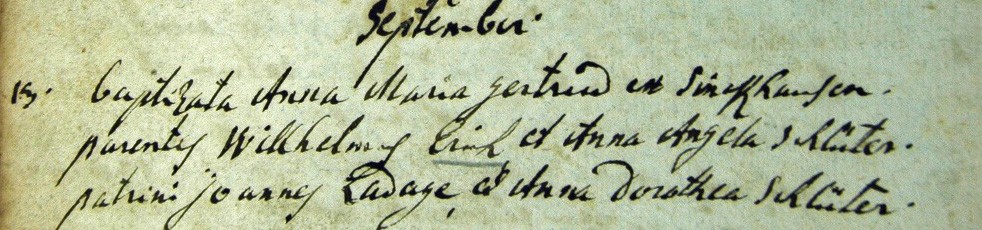 September
13. baptizata Anna Maria gertrud ex Sinckhausen.
parentes Willhelmus Erick et Anna Angela Schlüter.
patrini joannes Ladage et Anna Dorothea Schlüter.